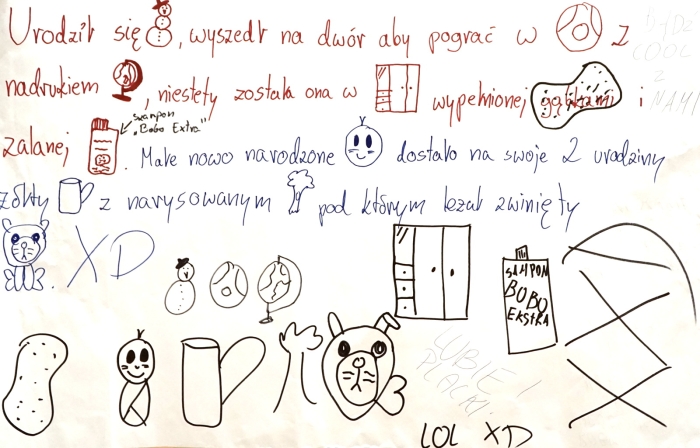 Urodził się , wyszedł na dwór aby pograć w z
nadrukiem , niestety została ona w wypełnionej gąbkami i
zalanej szampon „Bobo Extra" . Małe nowo narodzone dostało na swoje 2 urodziny
żółty z narysowanym pod którym leżał zwinięty
. XD
BĄDŹ
COOL
Z
NAMI
SZAMPON
BOBO
EKSTRA
LUBIE
PLACKI
LOL XD